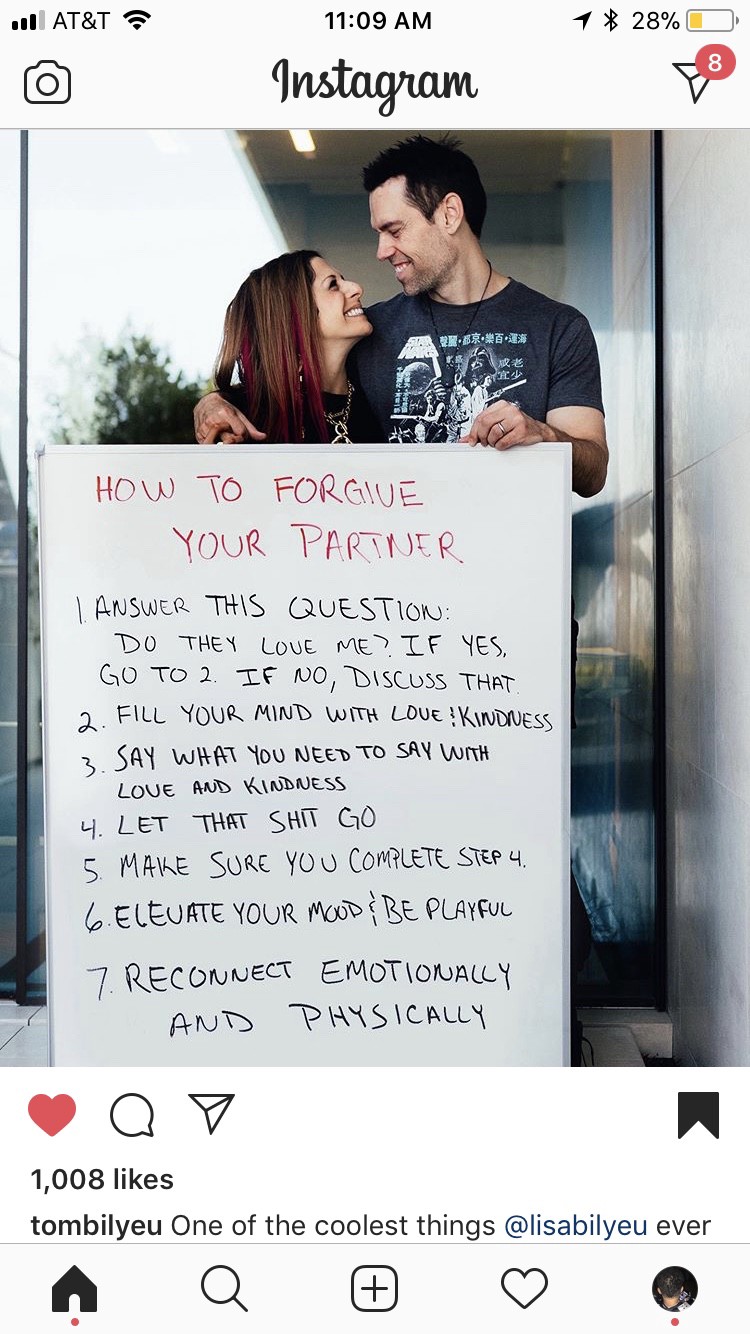 AT&T 11:09 AM 28%
Instagram 8
STAR WARS
HOW TO FORGIVE
YOUR PARTNER
1. ANSWER THIS QUESTION:
DO THEY LOVE ME? IF YES,
GO TO 2. IF NO, DISCUSS THAT.
2. FILL YOUR MIND WITH LOVE & KINDNESS
3. SAY WHAT YOU NEED TO SAY WITH
LOVE AND KINDNESS
4. LET THAT SHIT GO
5. MAKE SURE YOU COMPLETE STEP 4.
6. ELEVATE YOUR MOOD & BE PLAYFUL
7. RECONNECT EMOTIONALLY
AND PHYSICALLY
1,008 likes
tombilyeu One of the coolest things @lisabilyeu ever